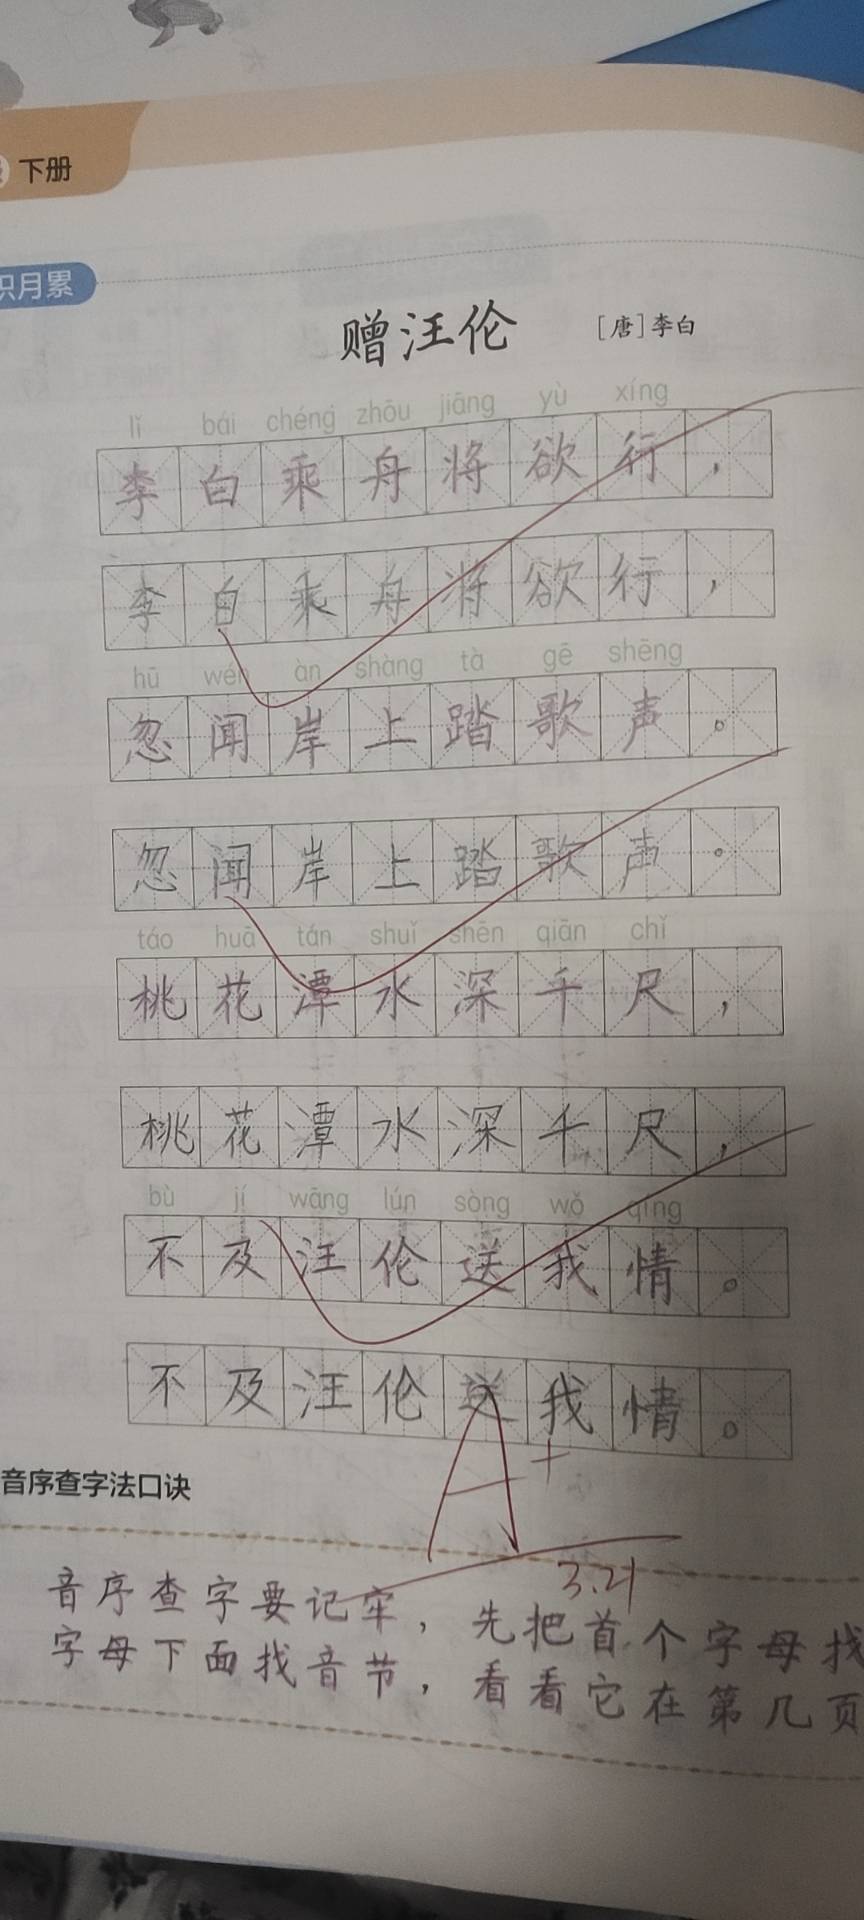 下册
积月累
赠汪伦 [唐]李白
lǐ bái chéng zhōu jiāng yù xíng
李白乘舟将欲行，
李白乘舟将欲行，
hū wén àn shàng tà gē shēng
忽闻岸上踏歌声。
忽闻岸上踏歌声。
táo huā tán shuǐ shēn qiān chǐ
桃花潭水深千尺，
桃花潭水深千尺，
bù jí wāng lún sòng wǒ qíng
不及汪伦送我情。
不及汪伦送我情。
A+
3.21
音序查字法口诀
音序查字要记牢，先把首个字母找
字母下面找音节，看看它在第几页